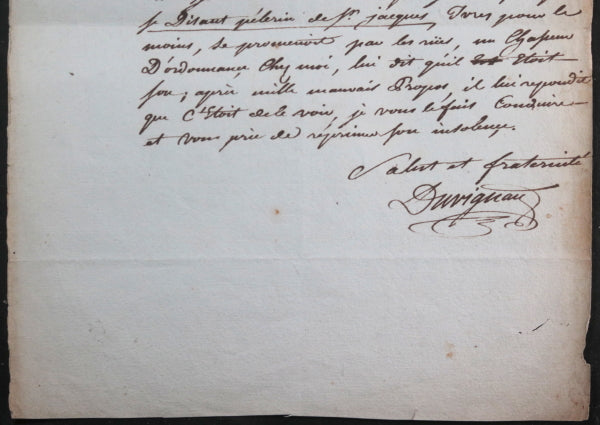 se Disant pélerin de St. jacques, Ivres pour le
moins, se promenoit par les rües, un Chasseur
D'ordonnance, Chez moi, lui dit qu'il Etoit
fou; après mille mauvais Propos, il lui repondit
que C'Etoit de le voir, je vous le fais Conduire
et vous prie de réprimer son insolence.
Salut et fraternité
Duvignau